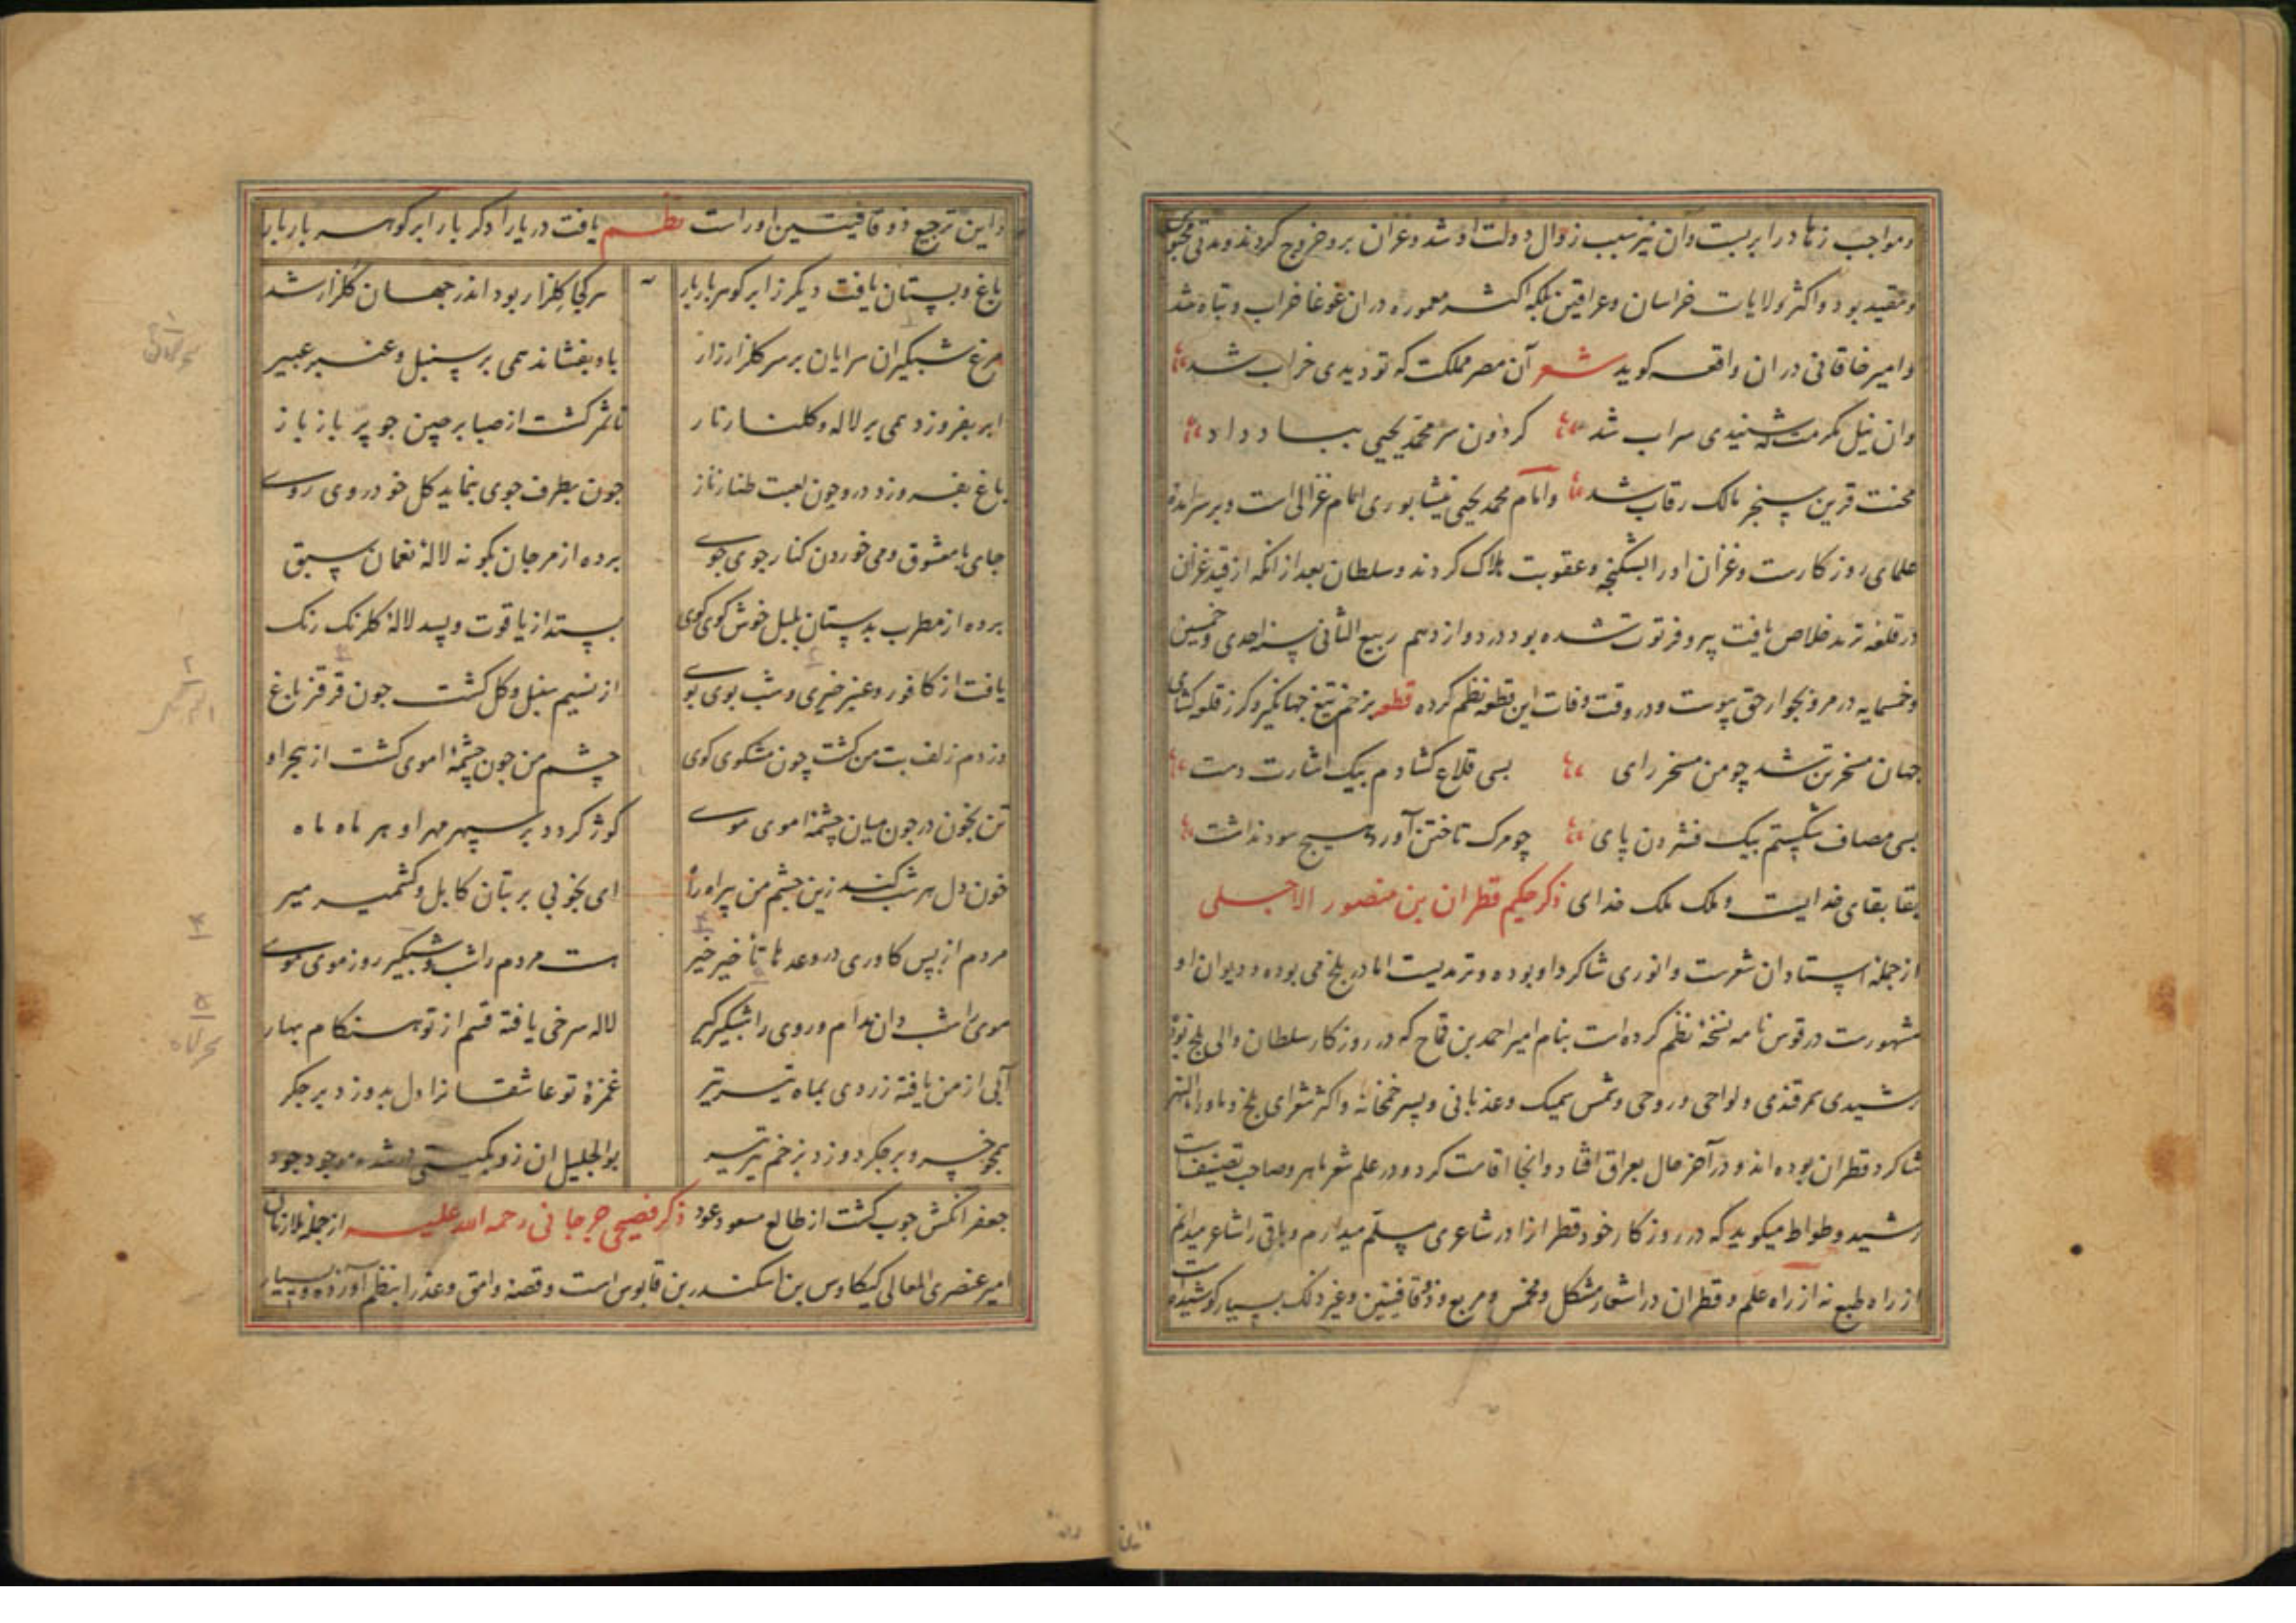 و مواجب زیاد را بر بست و آن نیز سبب زوال دولت او شد و غزان برو خروج کردند و مدتی محبوس
و مقید بود و اکثر ولایات خراسان و عراقین بلکه اکثر معموره در ان غوغا خراب و تباه شد
و امیر خاقانی در ان واقعه کوید شعر آن مصر مملکت که تو دیدی خراب شد
وان نیل مکرمت که شنیدی سراب شد کردون سر محمد یحیی بباد داد
محنت قرین سنجر مالک رقاب شد و امام محمد یحیی نیشابوری امام غزالی است و بر سرآمده
علمای روزکارست و غزان او را بشکنجه و عقوبت هلاک کردند و سلطان بعد از انکه از قید غزان
در قلعه ترمد خلاص یافت پیر و فرتوت شده بود در دوازدهم ربیع الثانی سنه احدی و خمسین
و خمسمایه در مرو بجوار حق پیوست و در وقت وفات این قطعه نظم کرده قطعه بزخم تیغ جهانکیر و کرز قلعه کشای
جهان مسخر من شد چو من مسخر رای بسی قلاع کشادم بیک اشارت دست
بسی مصاف شکستم بیک فشردن پای چو مرک تاختن آورد هیچ سود نداشت
بقا بقای خدایست و ملک ملک خدای ذکر حکیم قطران بن منصور الاجلی
از جمله استادان شعرست و انوری شاکرد او بوده و ترمدیست اما در بلخ می بوده و دیوان او
مشهورست در قوس نامه نسخهٔ نظم کرده است بنام امیر احمد بن قماج که در روزکار سلطان والی بلخ بود و
رشیدی سمرقندی و لواحی و روحی و شمس سمیک و عدنانی و پسر خمخانه و اکثر شعرای بلخ و ماوراءالنهر
شاکرد قطران بوده اند و در آخر حال بعراق افتاد و انجا اقامت کرد و در علم شعر ماهر و صاحب تصنیفات
رشید وطواط میکوید که در روزکار خود قطرانرا در شاعری مسلم میدارم و باقی را شاعر میدانم
از راه طبع نه از راه علم و قطران در اشعار مشکل و مخمس و مربع و ذوقافیتین و غیر ذلک بسیار کوشیده
و این ترجیع ذوقافیتین او راست نظم یافت دریا را دکر بار ابر کوهر بار بار
باغ و بستان یافت دیکر ز ابر کوهر بار بار هر کجا کلزار بود اندر جهان کلزار شد
مرغ شبکیران سرایان بر سر کلزار زار باد بفشاند همی بر سنبل و عنبر عبیر
ابر بفروزد همی بر لاله و کلنار نار تا شمر کشت از صبا بر چین جو پر باز باز
باغ بفروزد درو چون لعبت طناز ناز جون بطرف جوی بنماید کل خودروی روی
جای با معشوق و می خوردن کنار جوی جوی برده از مرجان بکونه لالهٔ نعمان سبق
برده از مطرب بدستان بلبل خوش کوی کوی بستد از یاقوت و بسد لالهٔ کلرنک رنک
یافت از کافور و عنبر خیری و شب بوی بوی از نسیم سنبل و کل کشت جون قرقز باغ
وز دم زلف بت من کشت چون مشکوی کوی چشم من جون چشمهٔ اموی کشت از هجر او
تن بخون در جون میان چشمهٔ اموی موی کوژ کردد بر سپهر مهر او هر ماه ماه
خون دل هر شب کند زین چشم من پیراه راه ای بخوبی بر بتان کابل و کشمیر میر
مردم از بس کاوری در وعدها تأخیر خیر هست مردم را شب و شبکیر روز موی موی
موی را شب دان مدام و روی را شبکیر کیر لاله سرخی یافته قسم از تو هنکام بهار
آبی از من یافته زردی بماه تیر تیر غمزهٔ تو عاشقانرا دل بدوزد بر جکر
همچو خسرو بر جکر دوزد بزخم تیر تیر بوالجلیل ان زو بکیتی شده موجود جود
جعفر انکش جوب کشت از طالع مسعود عود ذکر فصیحی جرجانی رحمه الله علیه از جمله ملازمان
امیر عنصری المعالی کیکاوس بن اسکندر بن قابوس است و قصهٔ وامق و عذرا بنظم آورده و بسیار